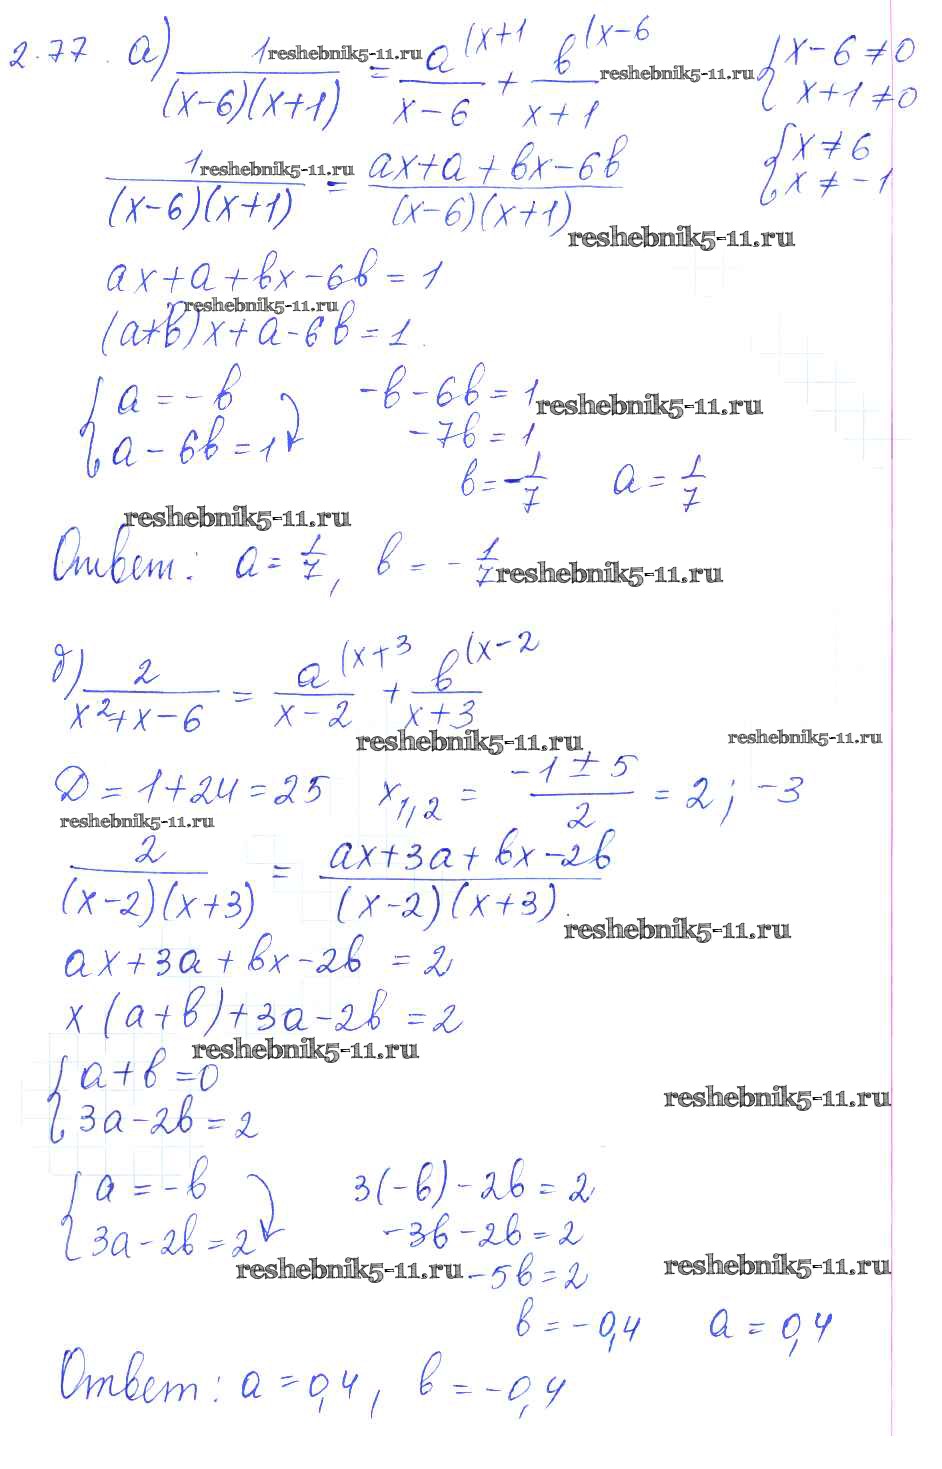 2.77. а) 1/((x-6)(x+1)) = a^(x+1/(x-6) + b^(x-6/(x+1) {x-6≠0 x+1≠0
reshebnik5-11.ru reshebnik5-11.ru
1/((x-6)(x+1)) = (ax+a+bx-6b)/((x-6)(x+1)) {x≠6 x≠-1
reshebnik5-11.ru
reshebnik5-11.ru
ax+a+bx-6b=1
reshebnik5-11.ru
(a+b)x+a-6b=1.
{a=-b -b-6b=1
reshebnik5-11.ru
a-6b=1 -7b=1
b=-1/7 a=1/7
reshebnik5-11.ru
Ответ: a=1/7, b=-1/7
reshebnik5-11.ru
б) 2/(x²+x-6) = a^(x+3/(x-2) + b^(x-2/(x+3)
reshebnik5-11.ru reshebnik5-11.ru
D=1+24=25 x1,2 = (-1±5)/2 = 2; -3
reshebnik5-11.ru
2/((x-2)(x+3)) = (ax+3a+bx-2b)/((x-2)(x+3)).
reshebnik5-11.ru
ax+3a+bx-2b=2
x(a+b)+3a-2b=2
reshebnik5-11.ru
{a+b=0
reshebnik5-11.ru
3a-2b=2
{a=-b 3(-b)-2b=2
3a-2b=2 -3b-2b=2
reshebnik5-11.ru -5b=2 reshebnik5-11.ru
b=-0,4 a=0,4
Ответ: a=0,4, b=-0,4